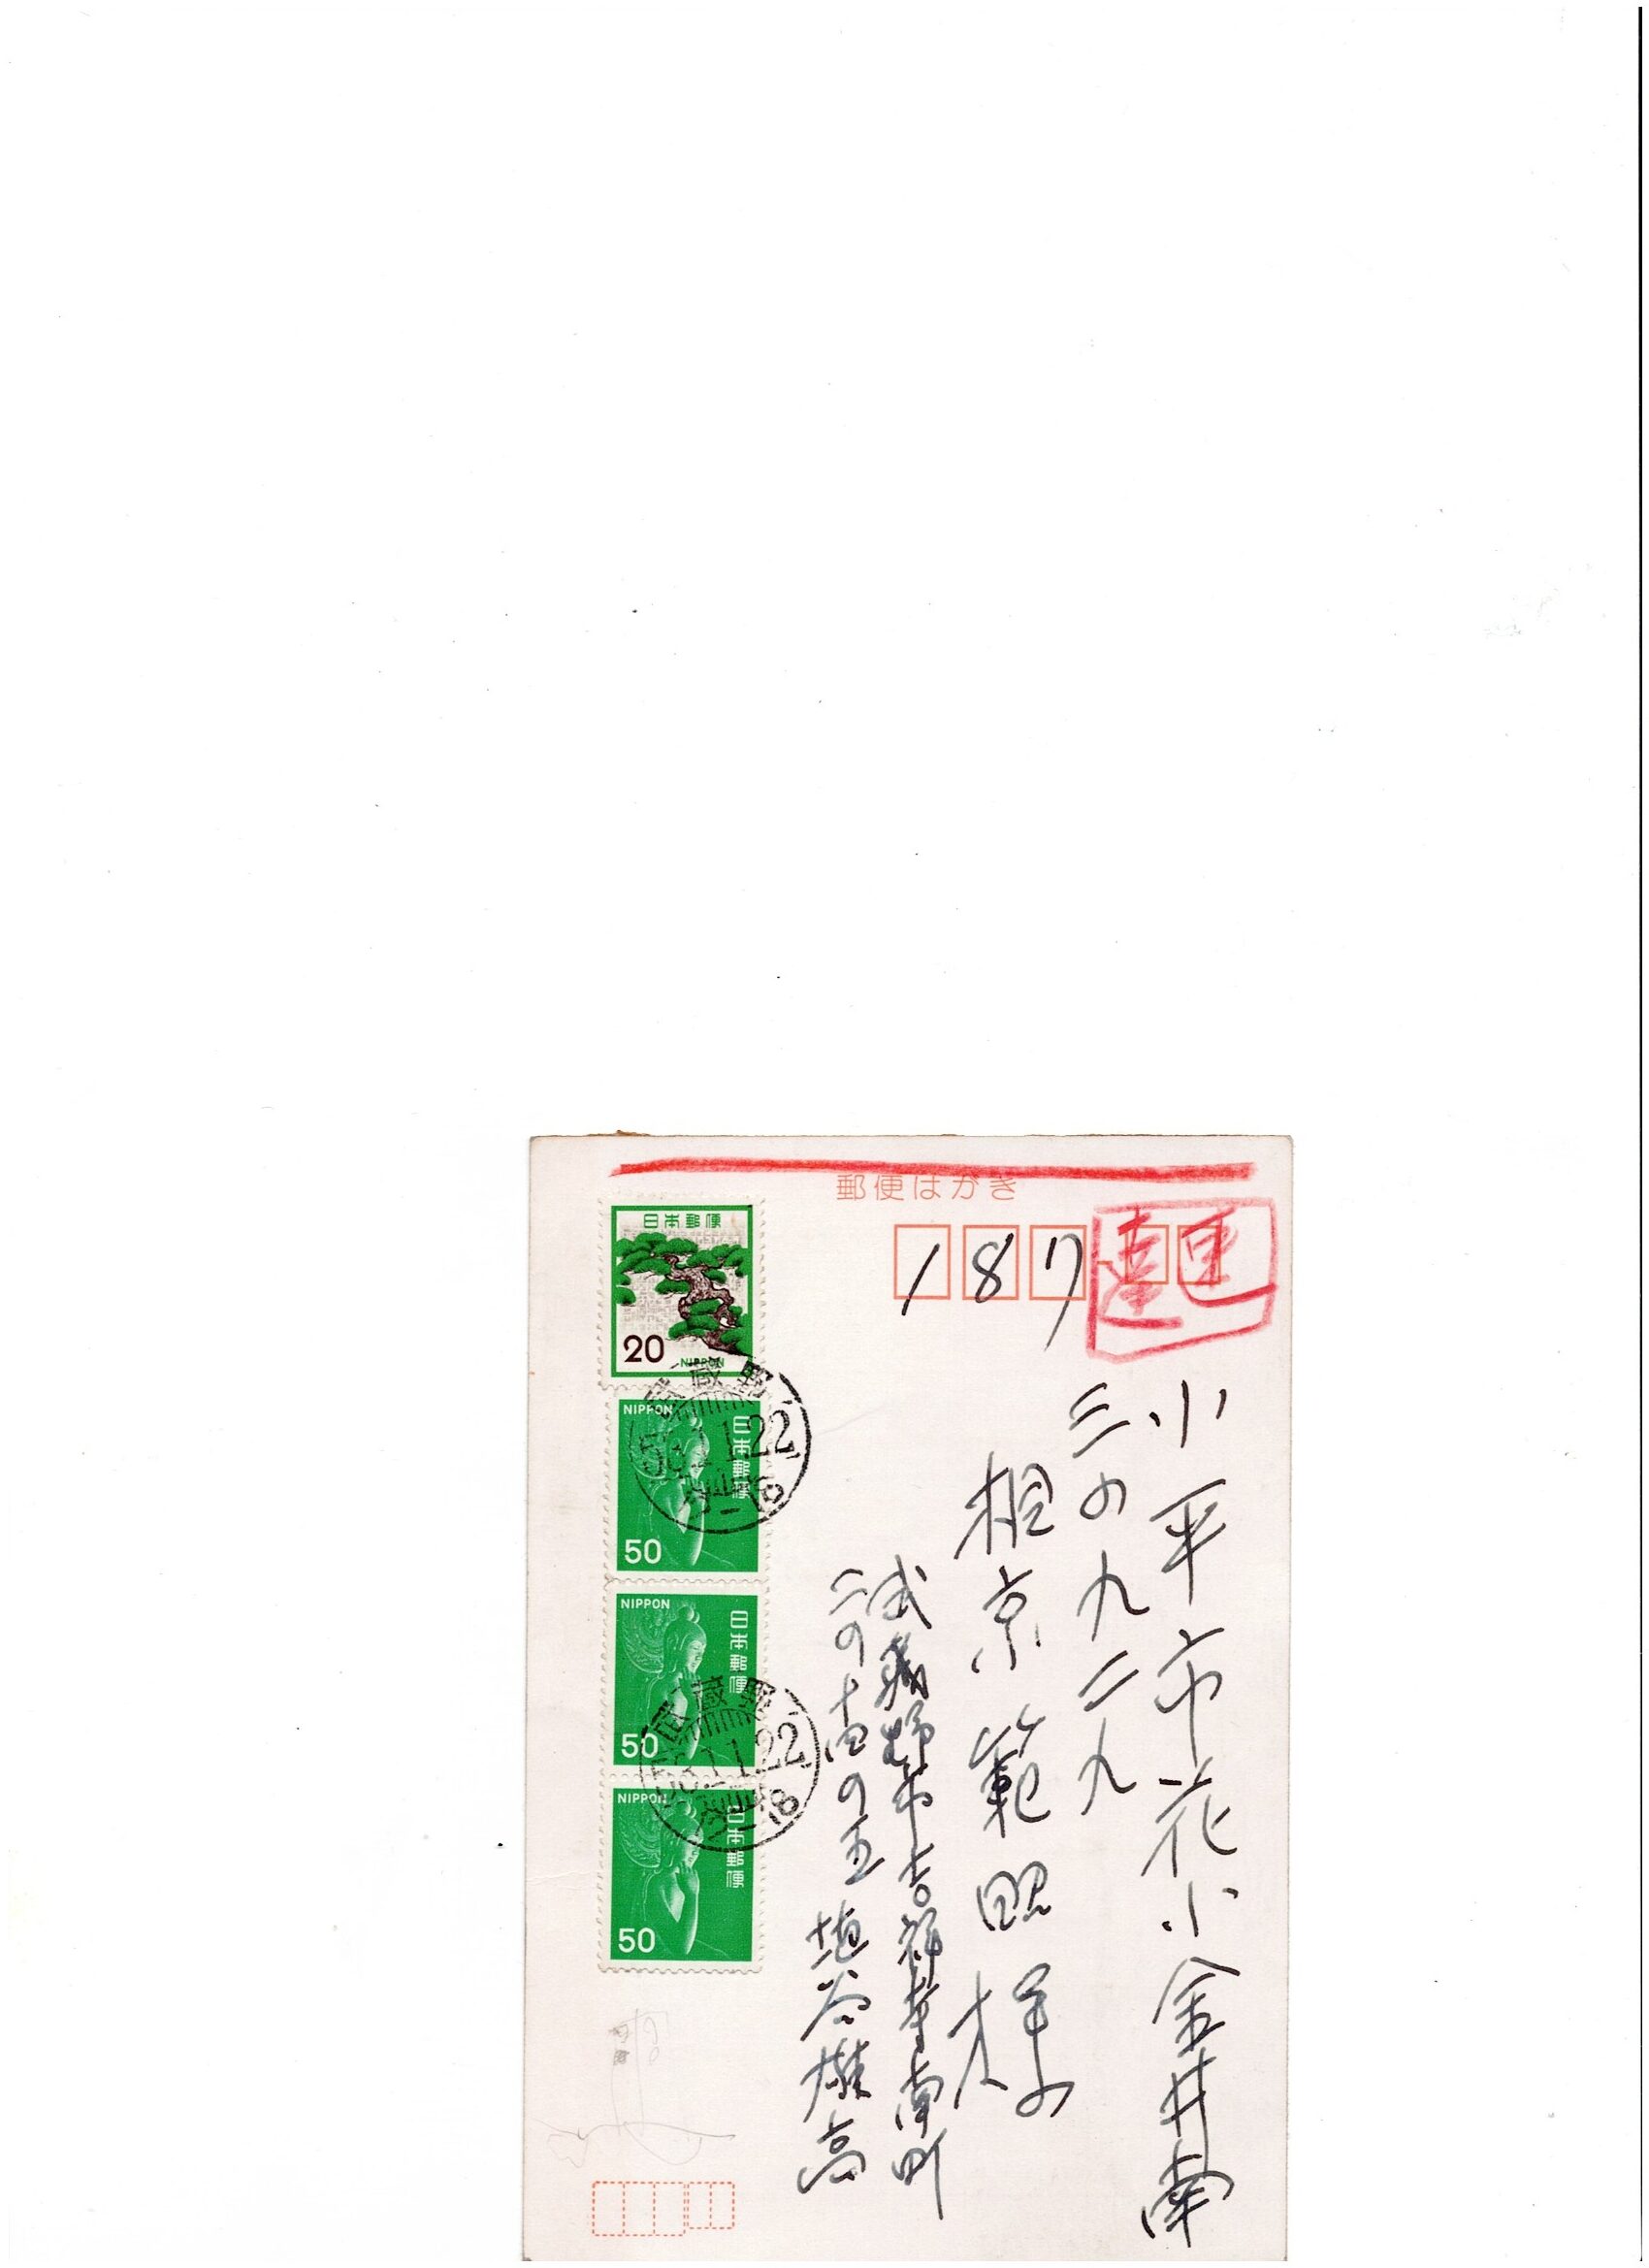 郵便はがき
187
速達
小平市花小金井南
三の九二九
相京範昭様
武蔵野市吉祥寺南町
二の十四の五
埴谷雄高
日本郵便
20
NIPPON
NIPPON
日本郵便
50
NIPPON
日本郵便
50
NIPPON
日本郵便
50
武蔵野
22
18
武蔵野
22
18